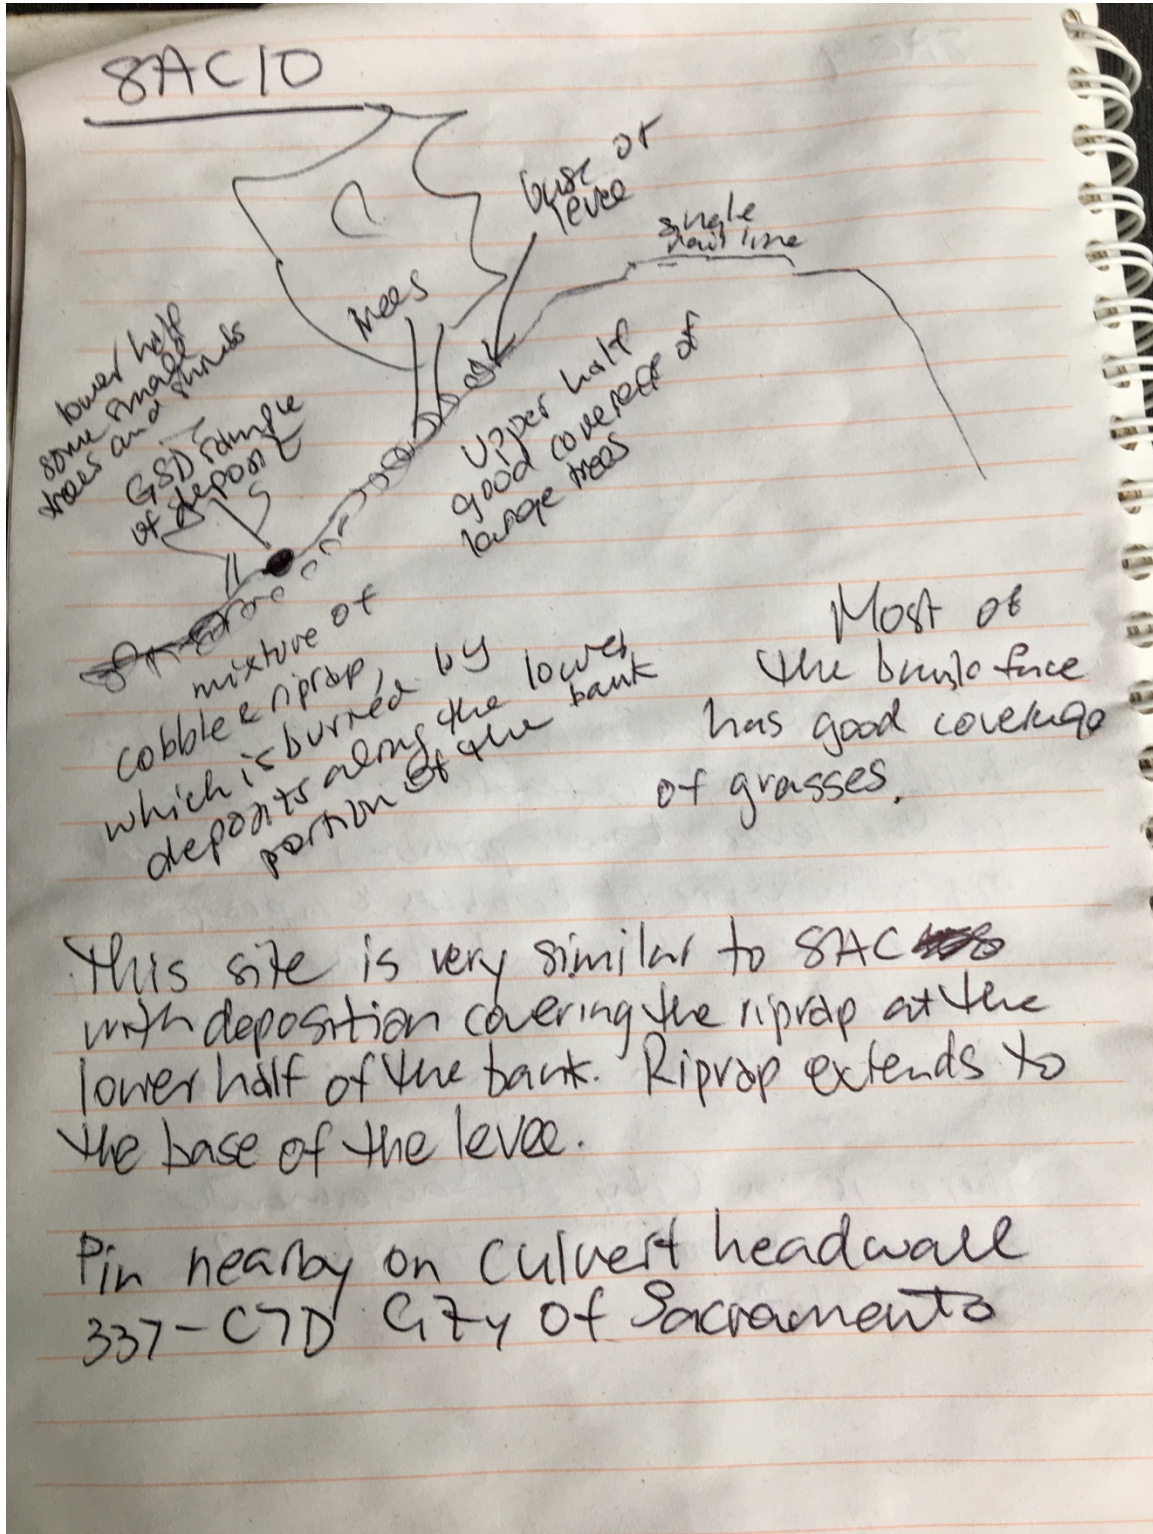 8AC10
base of
levee
single
lane
trees
lower half
some small
trees and shrubs
GSD sample
of deposit
Upper half
good coverage of
large trees
mixture of
cobble & riprap,
which is burried by
deposits along the lower
portion of the bank
Most of
the bank face
has good coverage
of grasses.
This site is very similar to 8AC
with deposition covering the riprap at the
lower half of the bank. Riprap extends to
the base of the levee.
Pin nearby on culvert headwall
337-C7D City of Sacramento